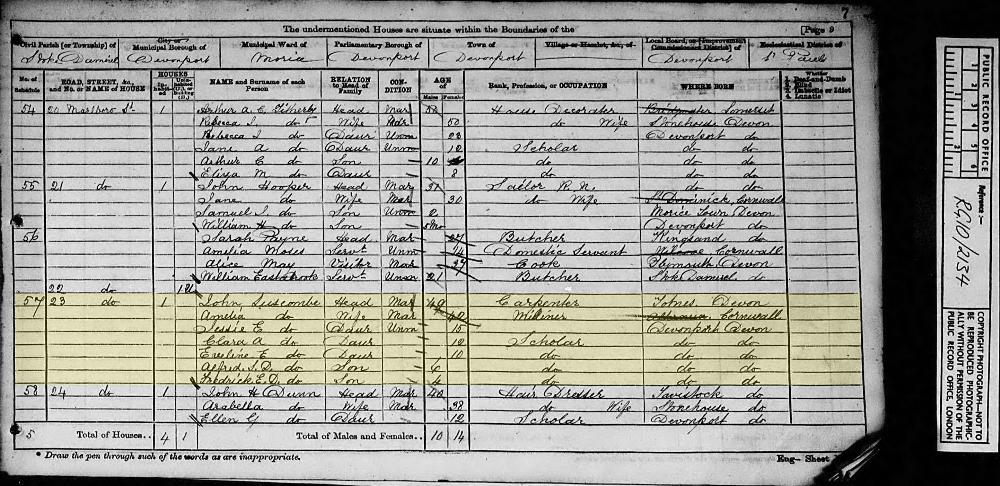 7
The undermentioned Houses are situate within the Boundaries of the
Page 9
Civil Parish [or Township] of
City or Municipal Borough of
Municipal Ward of
Parliamentary Borough of
Town of
Village or Hamlet, &c., of
Local Board, or [Improvement Commissioners District] of
Ecclesiastical District of
Stoke Damerel Devonport Morice Devonport Devonport Devonport St Pauls
No. of Schedule
ROAD, STREET, &c., and No. or NAME of HOUSE
HOUSES
Inhabited
NAME and Surname of each Person
RELATION to Head of Family
CONDITION
AGE
Males Females
Rank, Profession, or OCCUPATION
WHERE BORN
Whether
1. Deaf-and-Dumb
2. Blind
3. Imbecile or Idiot
4. Lunatic
54 20 Marlboro St 1 Arthur A. C. Head Mar House Decorator Somerset
Rebecca J. do Wife Mar 50 do Wife Stonehouse Devon
Rebecca J. do Daur Unm 23 Devonport do
Jane A do Daur Unm 12 Scholar do do
Arthur C do Son 10 do do do
Eliza M. do Daur 8 do do do
55 21 do 1 John Hooper Head Mar 31 Sailor R.N. do do
Jane do Wife Mar 30 do Wife St Dominick, Cornwall
Samuel J. do Son Unm 2 Morice Town Devon
William H do Son Devonport do
56 Sarah Payne Head Mar 27 Butcher Kingsand do
Amelia Moles Servt Unm 14 Domestic Servant Cornwall
Alice May Visitor Mar 27 Cook Plymouth Devon
William Eastabrook Servt Unm 21 Butcher Stoke Damerel do
22 do 1U
57 23 do 1 John Luscombe Head Mar 49 Carpenter Totnes Devon
Amelia do Wife Mar 42 Milliner Cornwall
Jessie E. do Daur Unm 15 Devonport Devon
Clara A do Daur 12 Scholar do do
Eveline E do Daur 10 do do do
Alfred S. D. do Son 6 do do do
Fredrick E. D. do Son 4 do do do
58 24 do 1 John H Dunn Head Mar 40 Hair Dresser Tavistock do
Arabella do Wife Mar 38 do Wife Stonehouse do
Ellen G do Daur 12 Scholar Devonport do
5 Total of Houses.. 4 1 Total of Males and Females.. 10 14
* Draw the pen through such of the words as are inappropriate.
Eng— Sheet
PUBLIC RECORD OFFICE
1 2 3 4 5 6
Reference:—
RG10/2134
COPYRIGHT PHOTOGRAPH—NOT TO BE REPRODUCED PHOTOGRAPHICALLY WITHOUT PERMISSION OF THE PUBLIC RECORD OFFICE, LONDON